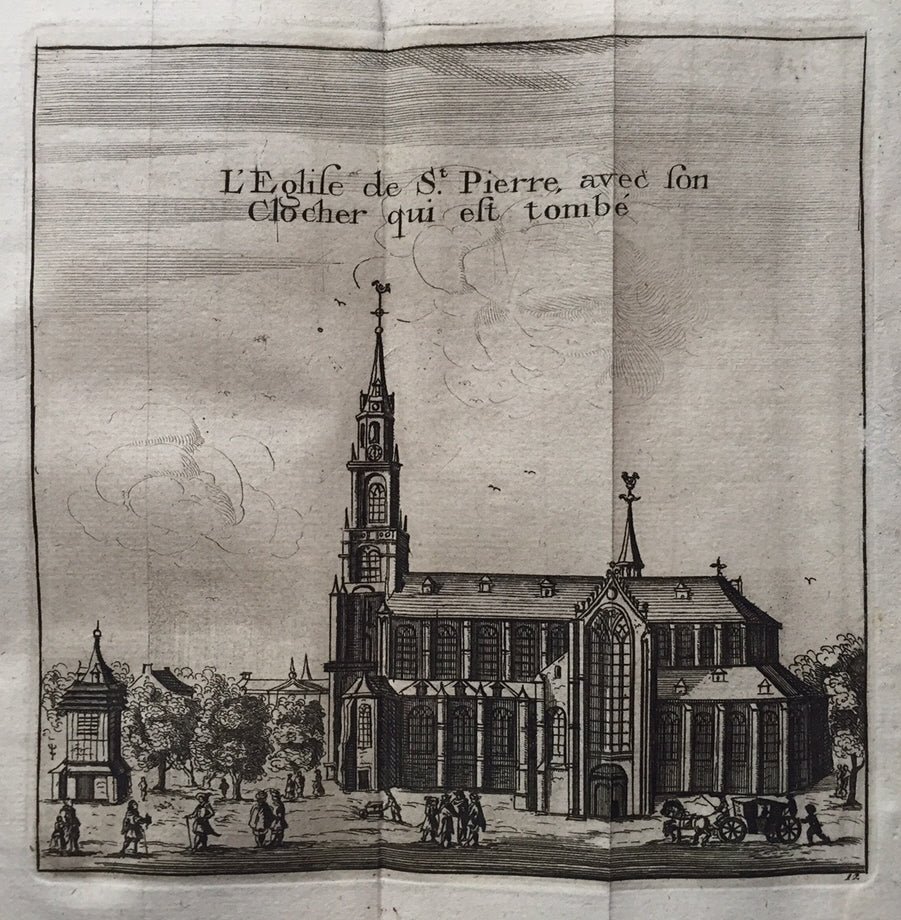 L'Egliſe de S.t Pierre, avec ſon
Clocher qui eſt tombé
12.